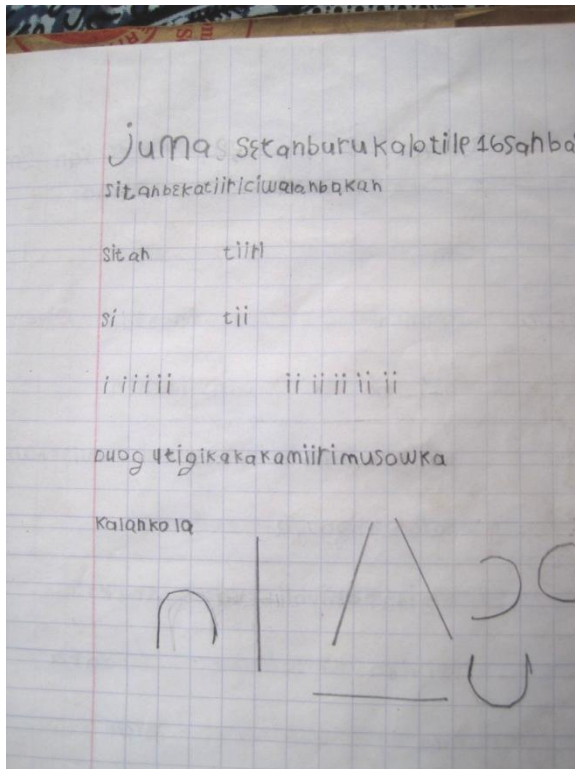 juma sɛtanburu kalo tile 16 san ba
sitanbɛkatiiriciwalanbakan
sitan tiiri
si tii
i i i i ii ii ii ii ii ii
dugutigikakakamiirimusowka
kalankola